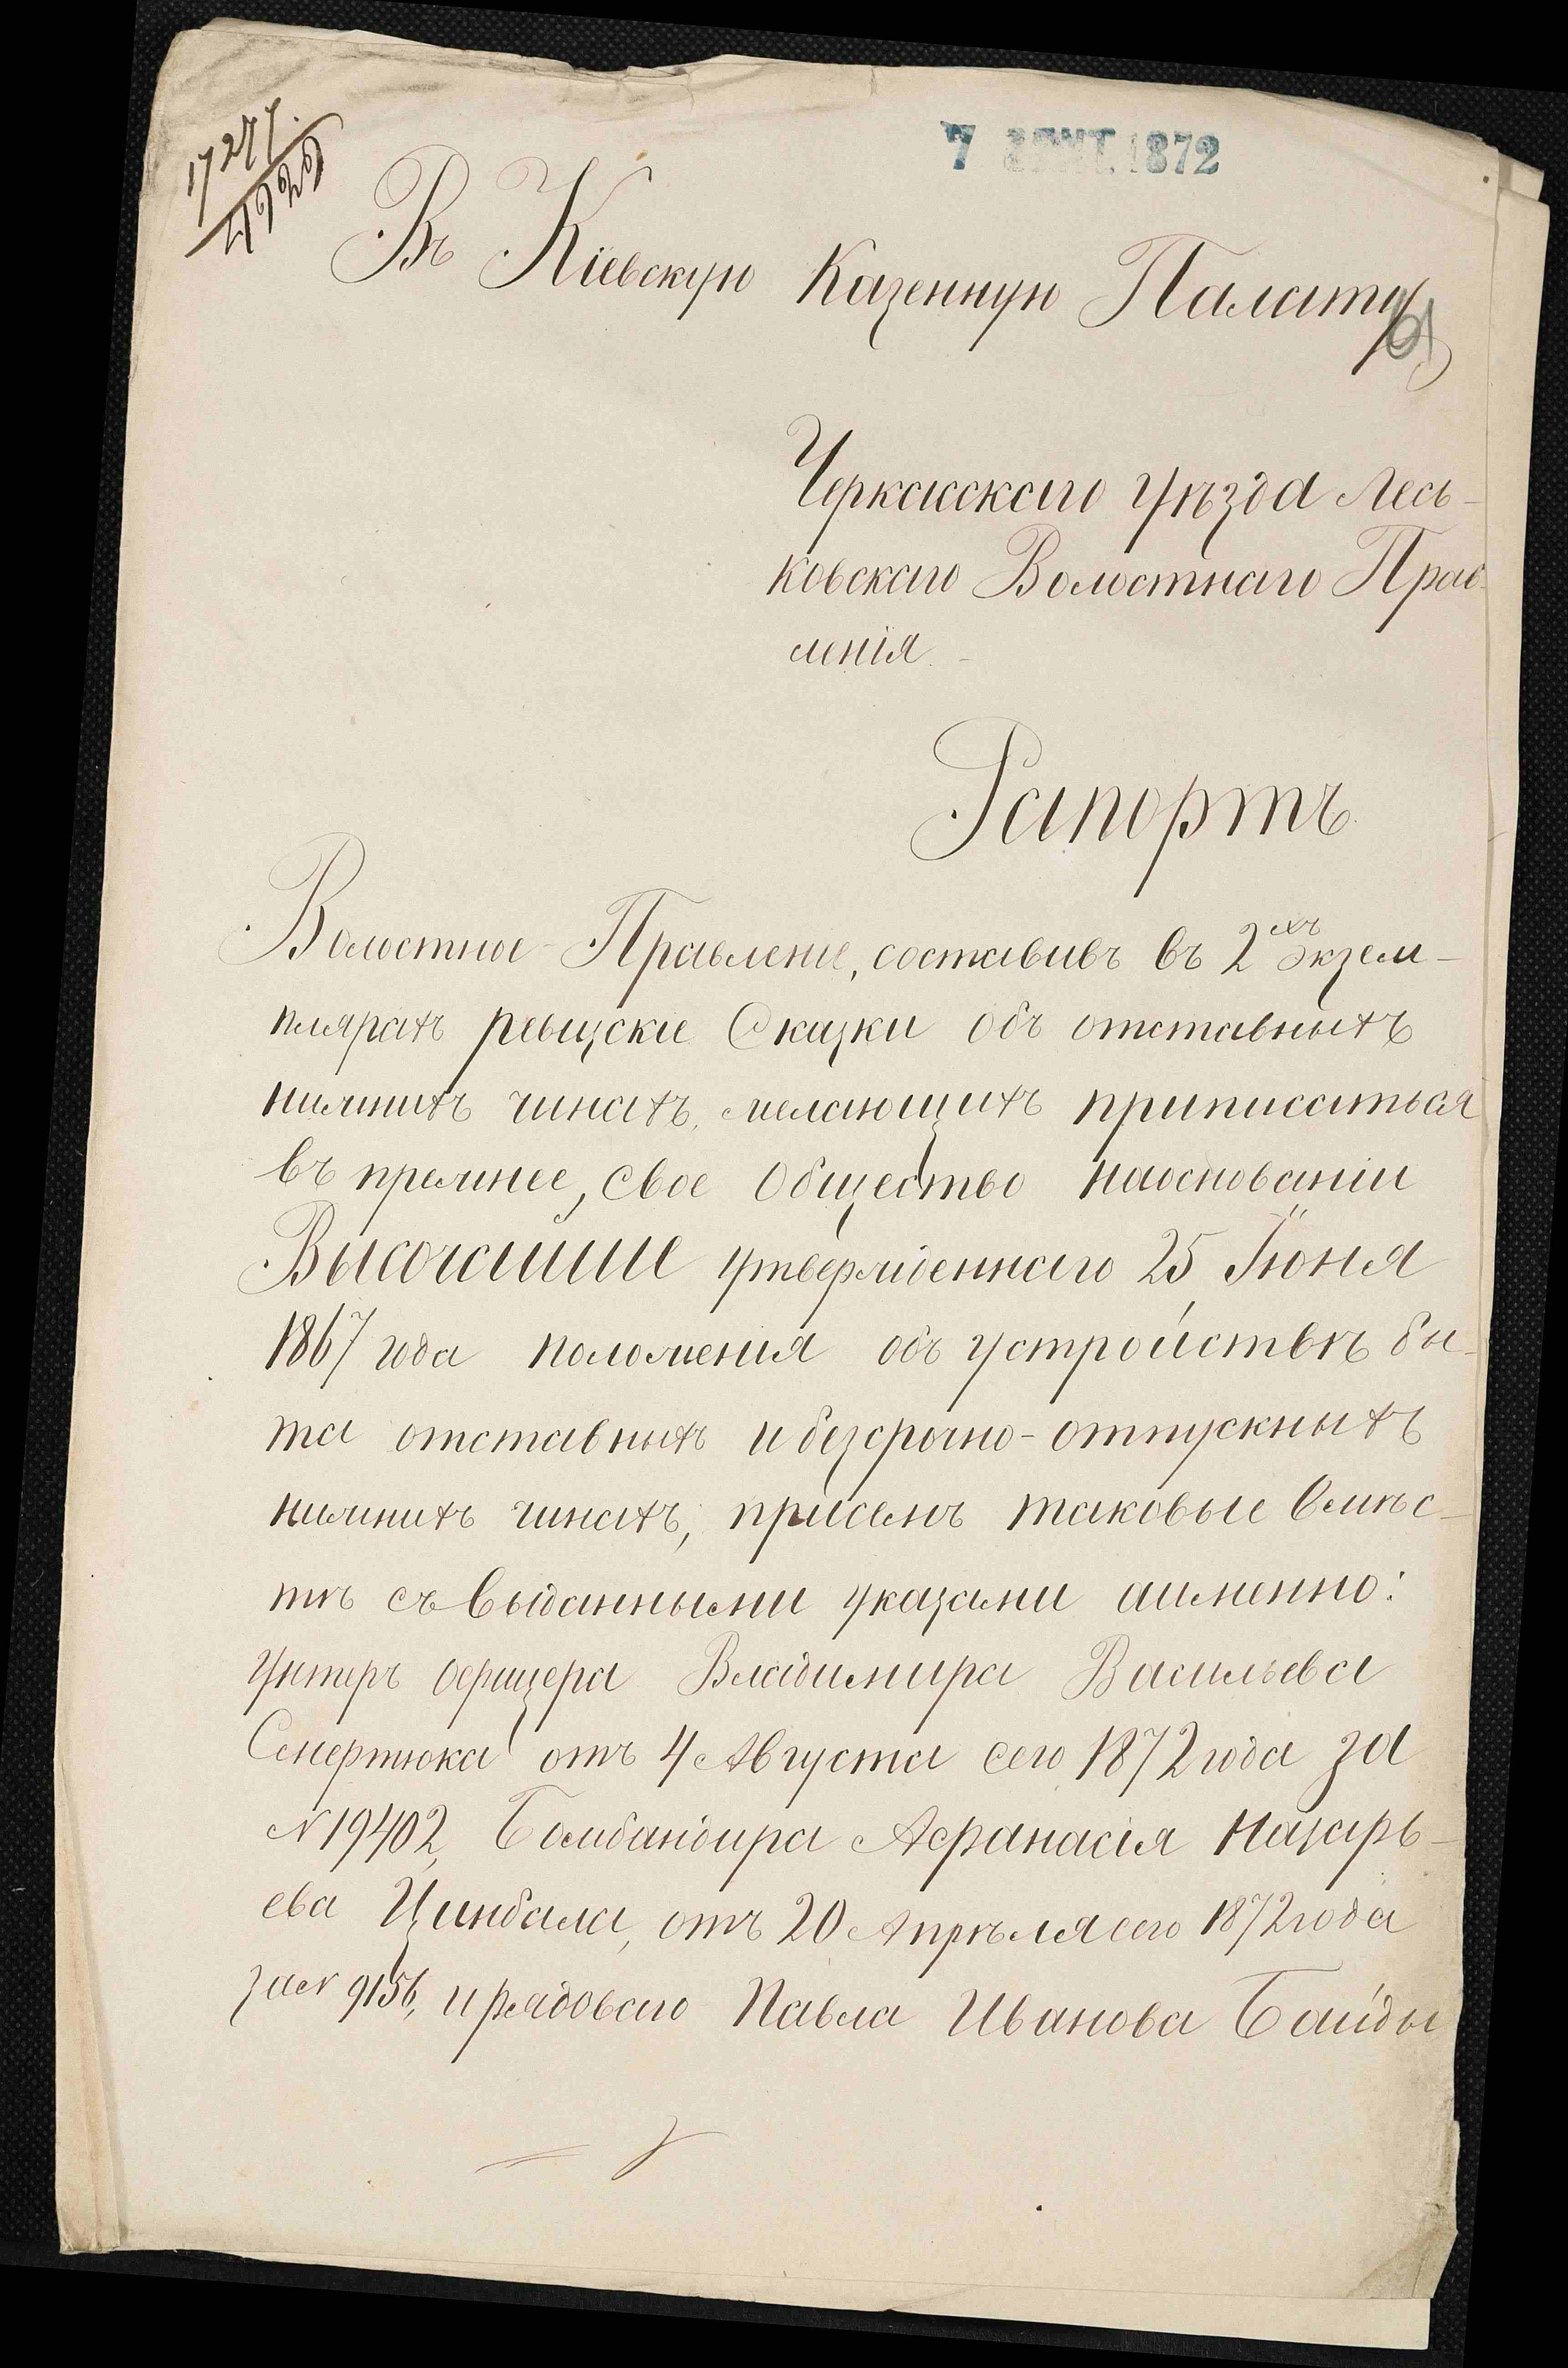 17277.
4929
7 СЕНТ. 1872
Въ Кіевскую Казенную Палату
61
Черкасскаго уѣзда Лесь-
ковскаго Волостнаго Прав-
ленія. -
Рапортъ.
Волостное Правленіе, составивъ въ 2хъ экзем-
плярахъ ревизскіе Сказки объ отставныхъ
нижнихъ чинахъ, желающихъ приписаться
въ прежнее, свое Общество наоснованіи
Высочайше утвержденнаго 25 Іюня
1867 года положенія объ устройствѣ бы-
та отставныхъ и безсрочно-отпускныхъ
нижнихъ чинахъ, при семъ таковые вмѣс-
тѣ съ выданными указами аименно:
Унтеръ офицера Владимира Васильева
Смертюка отъ 4 Августа сего 1872 года за
№ 19402, Бомбандира Афанасія Назарь-
ева Цинбала, отъ 20 Апрѣля сего 1872 года
за № 9156, и рядоваго Павла Иванова Байды